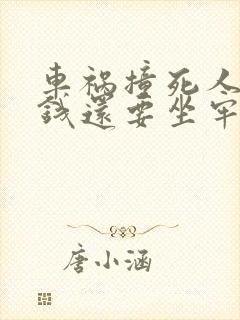 車禍撞死人
錢還要坐牢
唐小涵